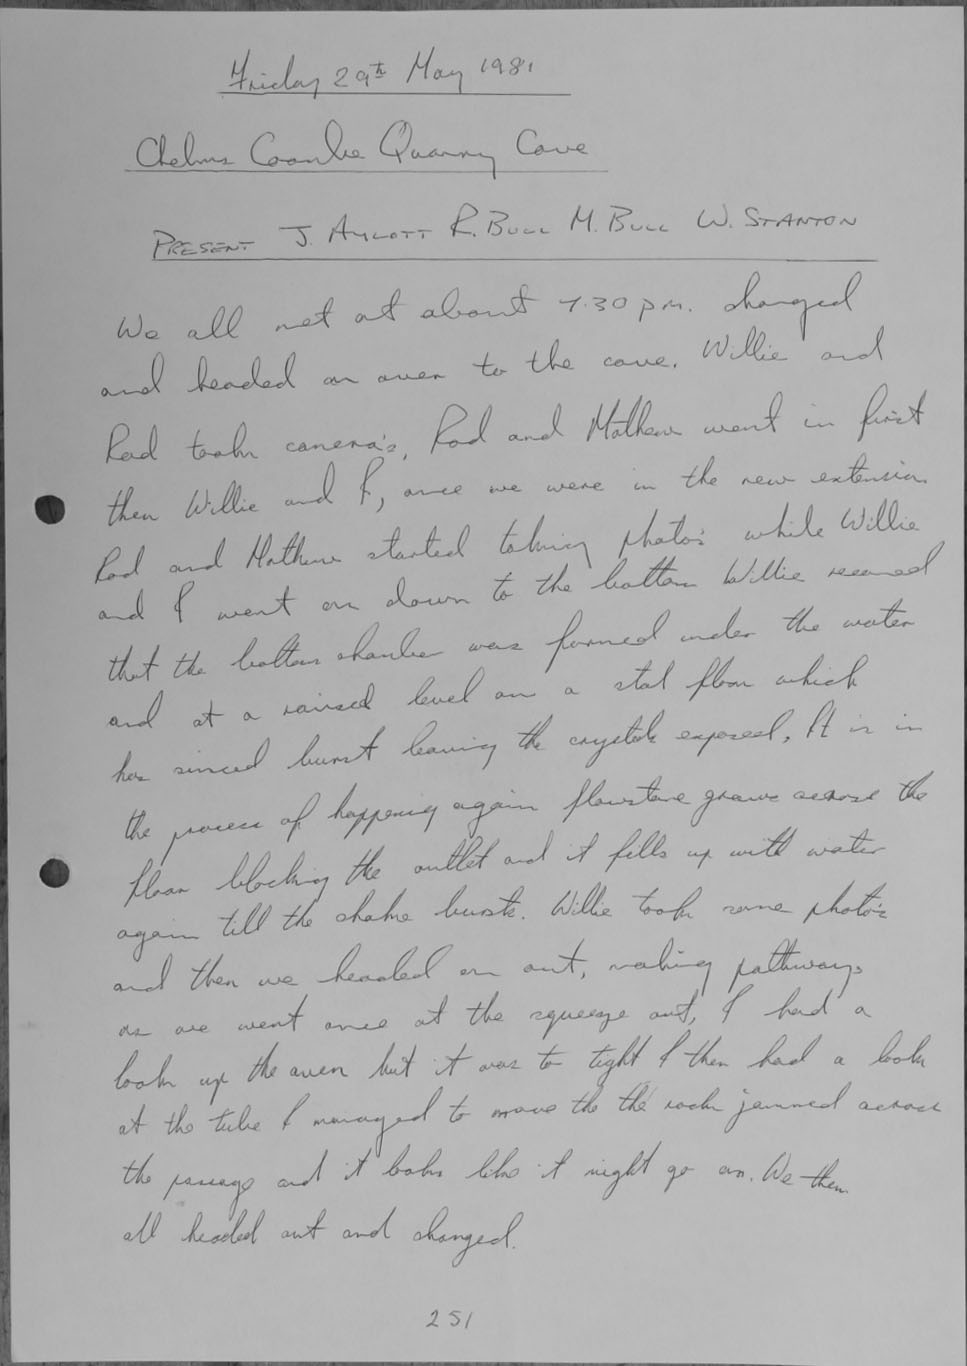 Friday 29th May 1981
Chelms Coombe Quarry Cave
PRESENT J. AYLOTT R. BULL M. BULL W. STANTON
We all met at about 7.30 pm. changed
and headed on over to the cave. Willie and
Rod took camera's, Rod and Mathew went in first
then Willie and I, once we were in the new extension
Rod and Mathew started taking photo's while Willie
and I went on down to the bottom Willie
that the bottom chamber was formed under the water
and at a raised level on a stal floor which
has sinced burst leaving the crystals exposed, It is in
the process of happening again flowstone grows across the
floor blocking the outlet and it fills up with water
again till the choke bursts. Willie took some photo's
and then we headed on out, making pathways
as we went once at the squeeze out, I had a
look up the aven but it was to tight I then had a look
at the tube I managed to move the the rock jammed across
the passage and it looks like it might go on. We then
all headed out and changed.
251